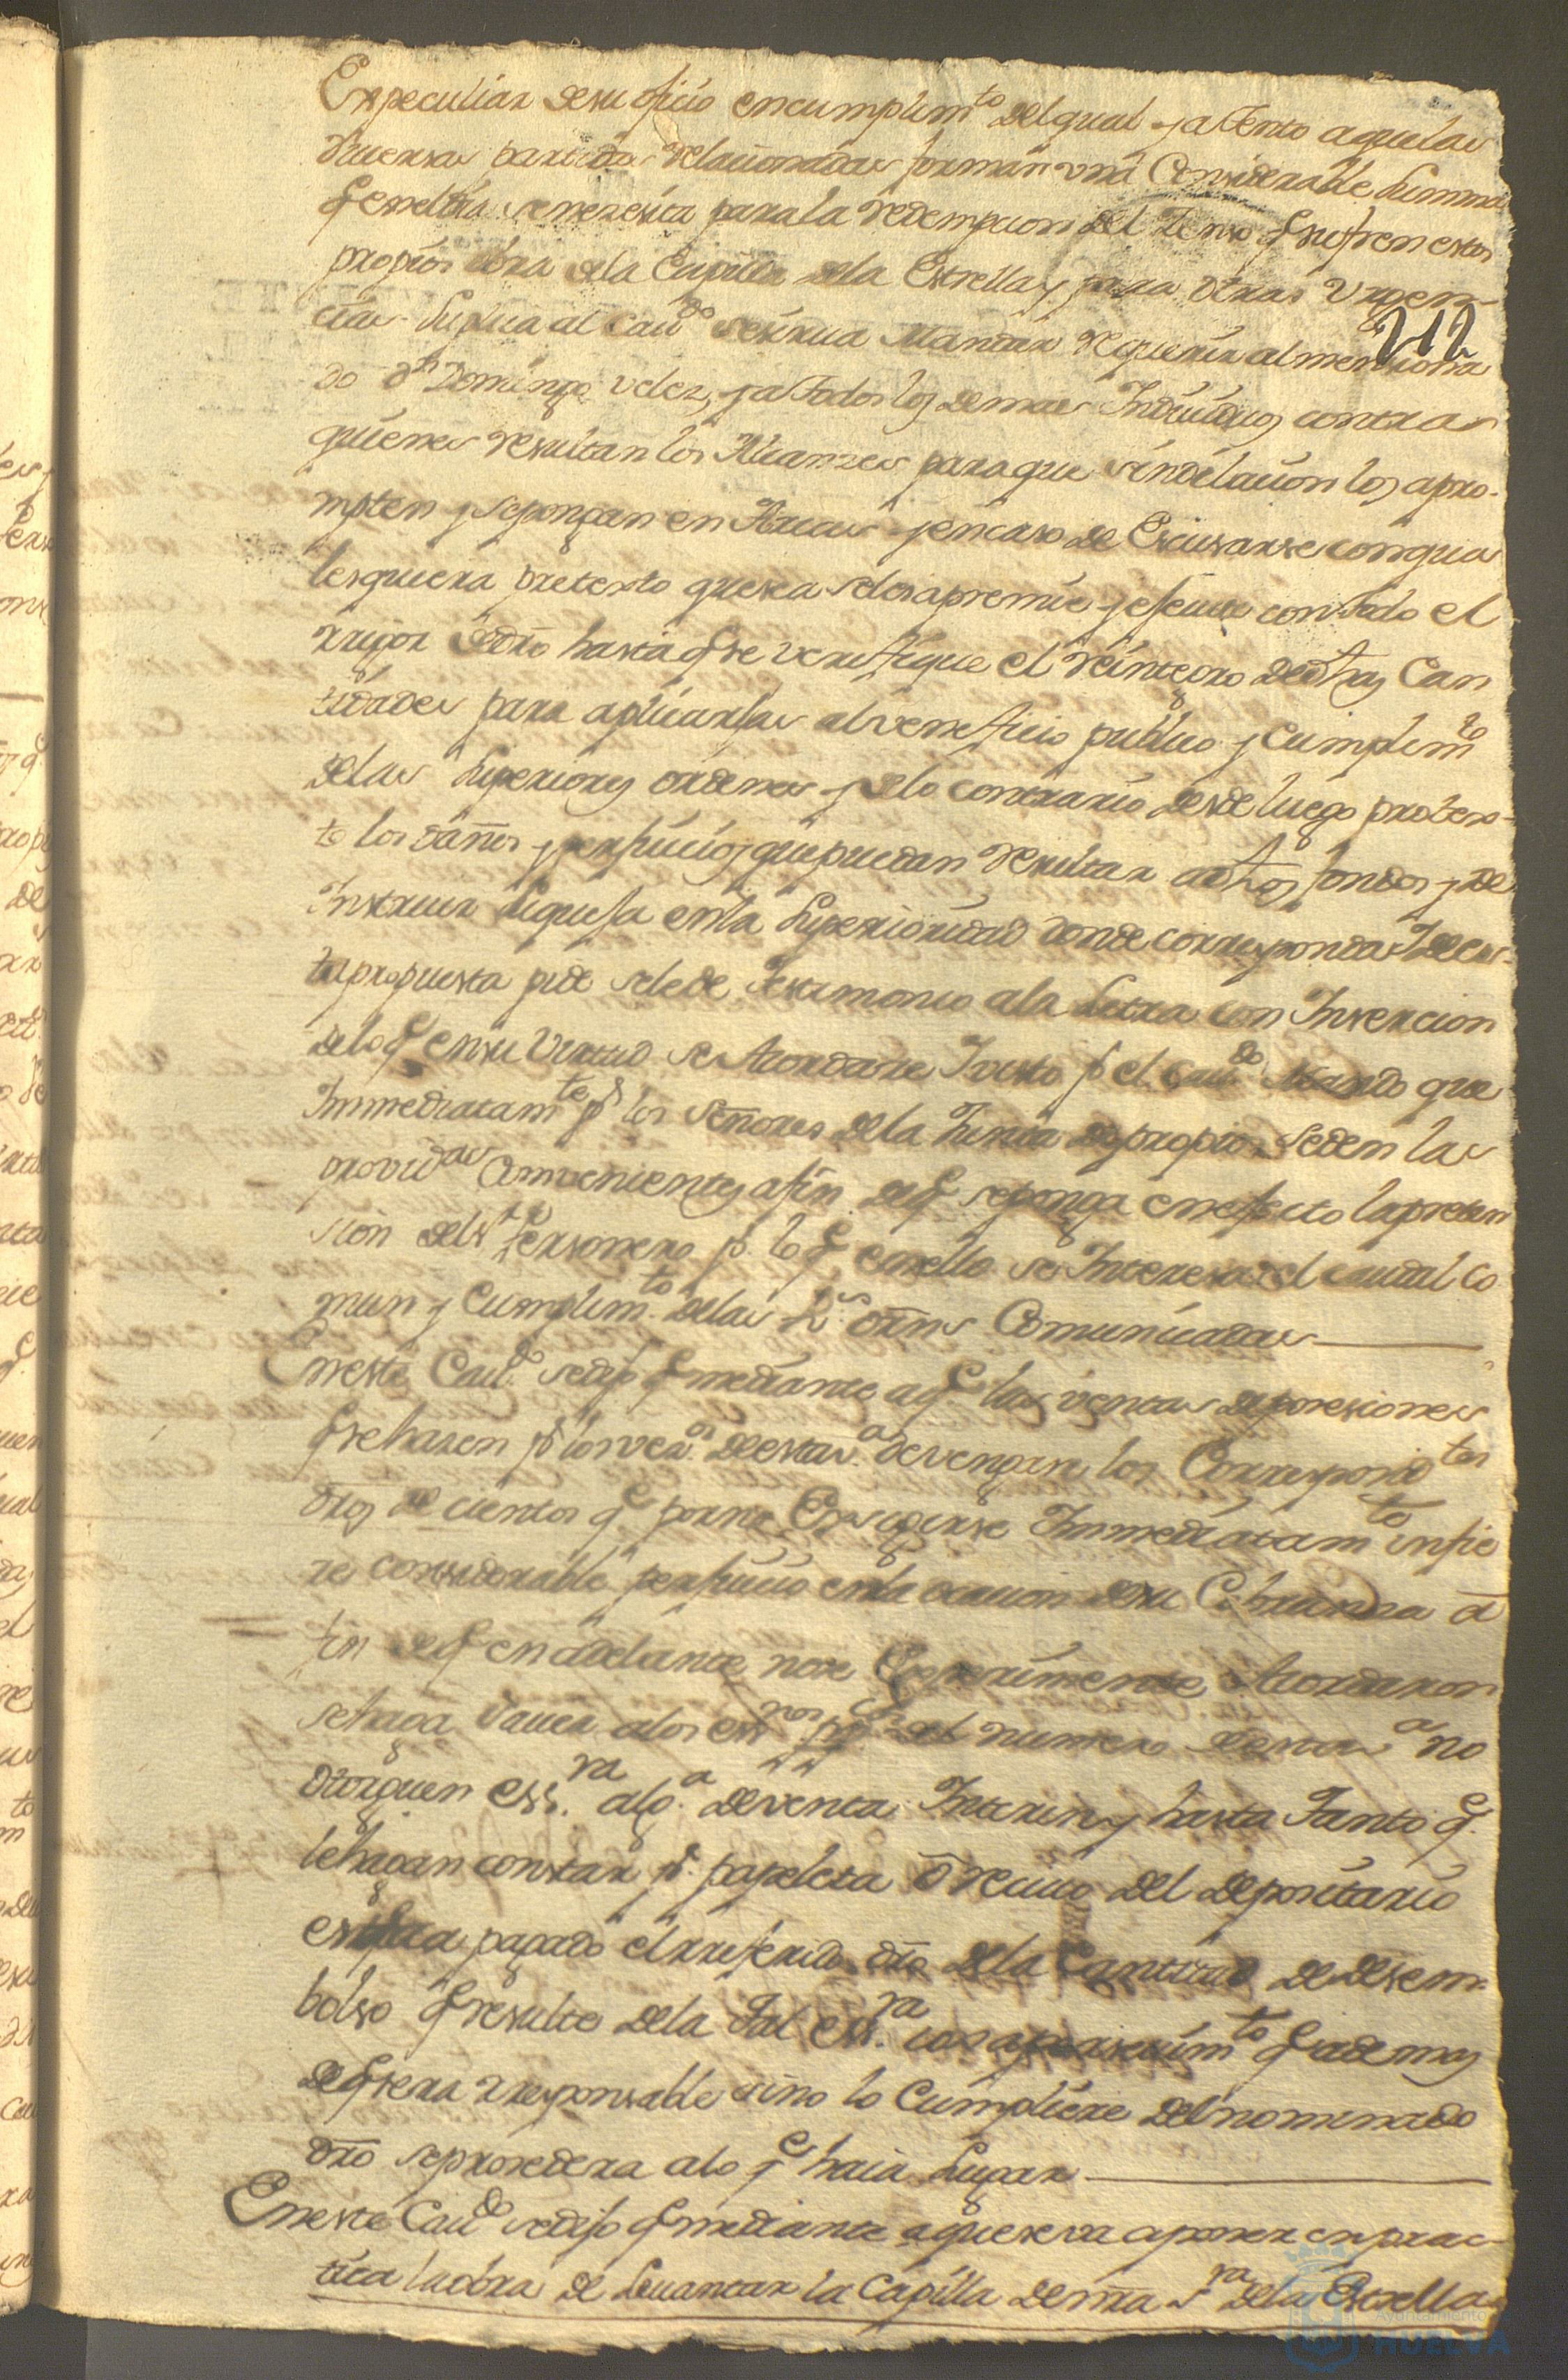 Expeculiar de su oficio en cumplim.to del qual y atento a que las
diversas partidas relacionadas forman una Considerable Summa
q.e en el dia se nezesita para la redempcion del Zenso q.e sufren estos
propios obra de la Capilla de la Estrella y para otras Vrgen-
212
cias Suplica al Cav.do se sirva Mandar requerir al menciona
do d.n Domingo Velez, y a todos los demas Individuos contra
quienes resultan los Alcanzes para que sin dilacion los apro-
mpten y se pongan en Arcas y en caso de Escusarse con qua
lesquiera pretexto que sea se les apremie y execute con todo el
rrigor de dro hasta q.e se verifique el reintegro de dhas Can
tidades para aplicarlas al veneficio publico y cumplim.to
de las Superiores ordenes y de lo contrario desde luego protes-
to los daños y perjuicios que puedan resultar a dhos fondos y de
Instruir su quexa en la Superioridad donde corresponda Y de es-
ta propuesta pide se le de Testimonio a la Letra con Insercion
de lo q.e en su Virtud se Acordare Y visto p.r el Cav.do Mando que
Immediatam.te p.r los Señores de la Junta de propios se den las
provid.as Combenientes a fin de q.e se ponga en efecto la preten
sion del S.r Personero p.r lo q.e en ello se Interesa el caudal co
mun y Cumplim.to de las R.s orñs Comunicadas
En este Cav.do se dijo q.e mediante a q.e las ventas de posesiones
q.e se hazen p.r los vez.os de esta v.a devengan los Correspond.tes
dros de cientos q.e por no Exsigirse Immediatam.te infie
re considerable perjuicio en la ocacion de su Cobranza a
fin de q.e en adelante no se Experimente Acordaron
se haga saver a los ess.nos pp.cos del numero de esta v.a no
otorguen ess.ra alg.a de venta Interin y hasta Tanto q.e
le hagan constar p.r papeleta o recivo del depositario
estar pagado el rreferido dro de la Cantidad de desem-
bolso q.e resulte de la Tal ess.ra con apersevim.to q.e ademas
de q.e sera rresponsable si no lo Cumpliere del nominado
dro se prosedera a lo q.e haia Lugar
En este Cav.do se dijo q.e mediante a que se va a poner en prac-
tica la obra de Levantar la Capilla de nra S.ra de la Estrella
Ayuntamiento
HUELVA